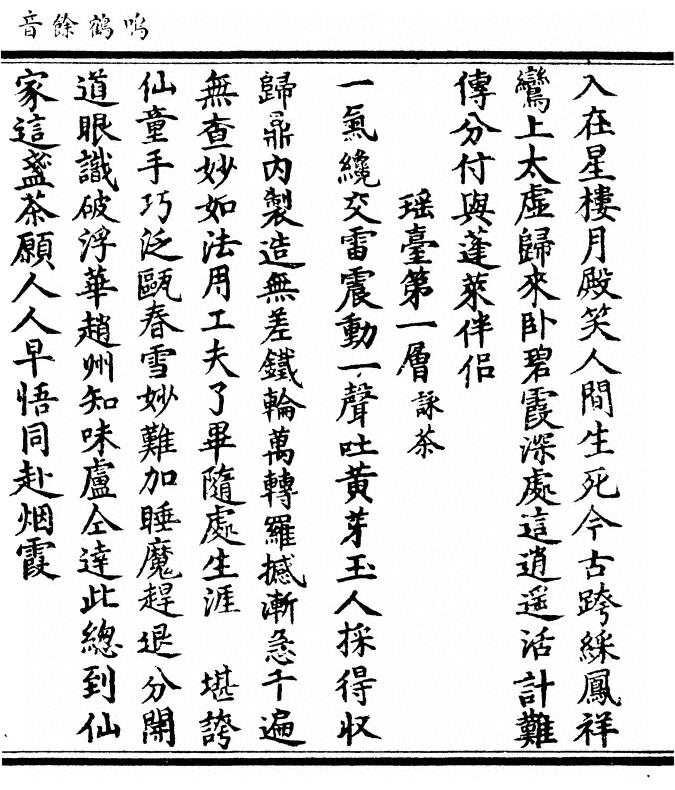 鳴鶴餘音
入在星樓月殿笑人間生死今古跨綵鳳祥
鸞上太虛歸來卧碧霞深處這逍遥活計難
傳分付與蓬萊伴侣
瑶臺第一層 詠茶
一氣纔交雷震動一聲吐黄芽玉人採得收
歸鼎内製造無差鐵輪萬轉羅撼漸急千遍
無查妙如法用工夫了畢隨處生涯 堪誇
仙童手巧泛甌春雪妙難加睡魔趕退分開
道眼識破浮華趙州知味盧仝達此總到仙
家這盞茶願人人早悟同赴烟霞